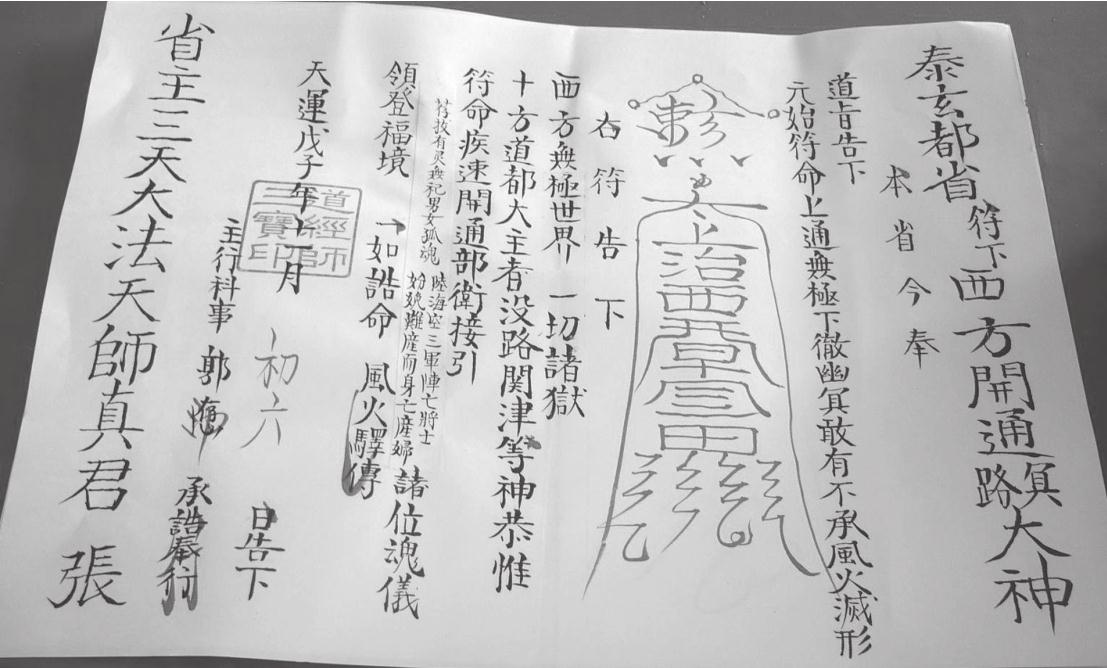 泰玄都省符下西方開通冥路大神
本省今奉
道旨告下
元始符命上通無極下徹幽冥敢有不承風火滅形
右符告下
西方無極世界一切諸獄
十方道都大主者没路関津等神恭惟
符命疾速開通部衛接引
苻拔有灵無祀男女孤魂
陸海空三軍陣亡將士
難産而身亡産婦
諸位魂儀
領登福境
一如誥命
風火驛傳
天運戊子年十一月
初六
日告下
道經師
三寶印
主行科事郭
承誥奉行
省主三天大法天師真君張